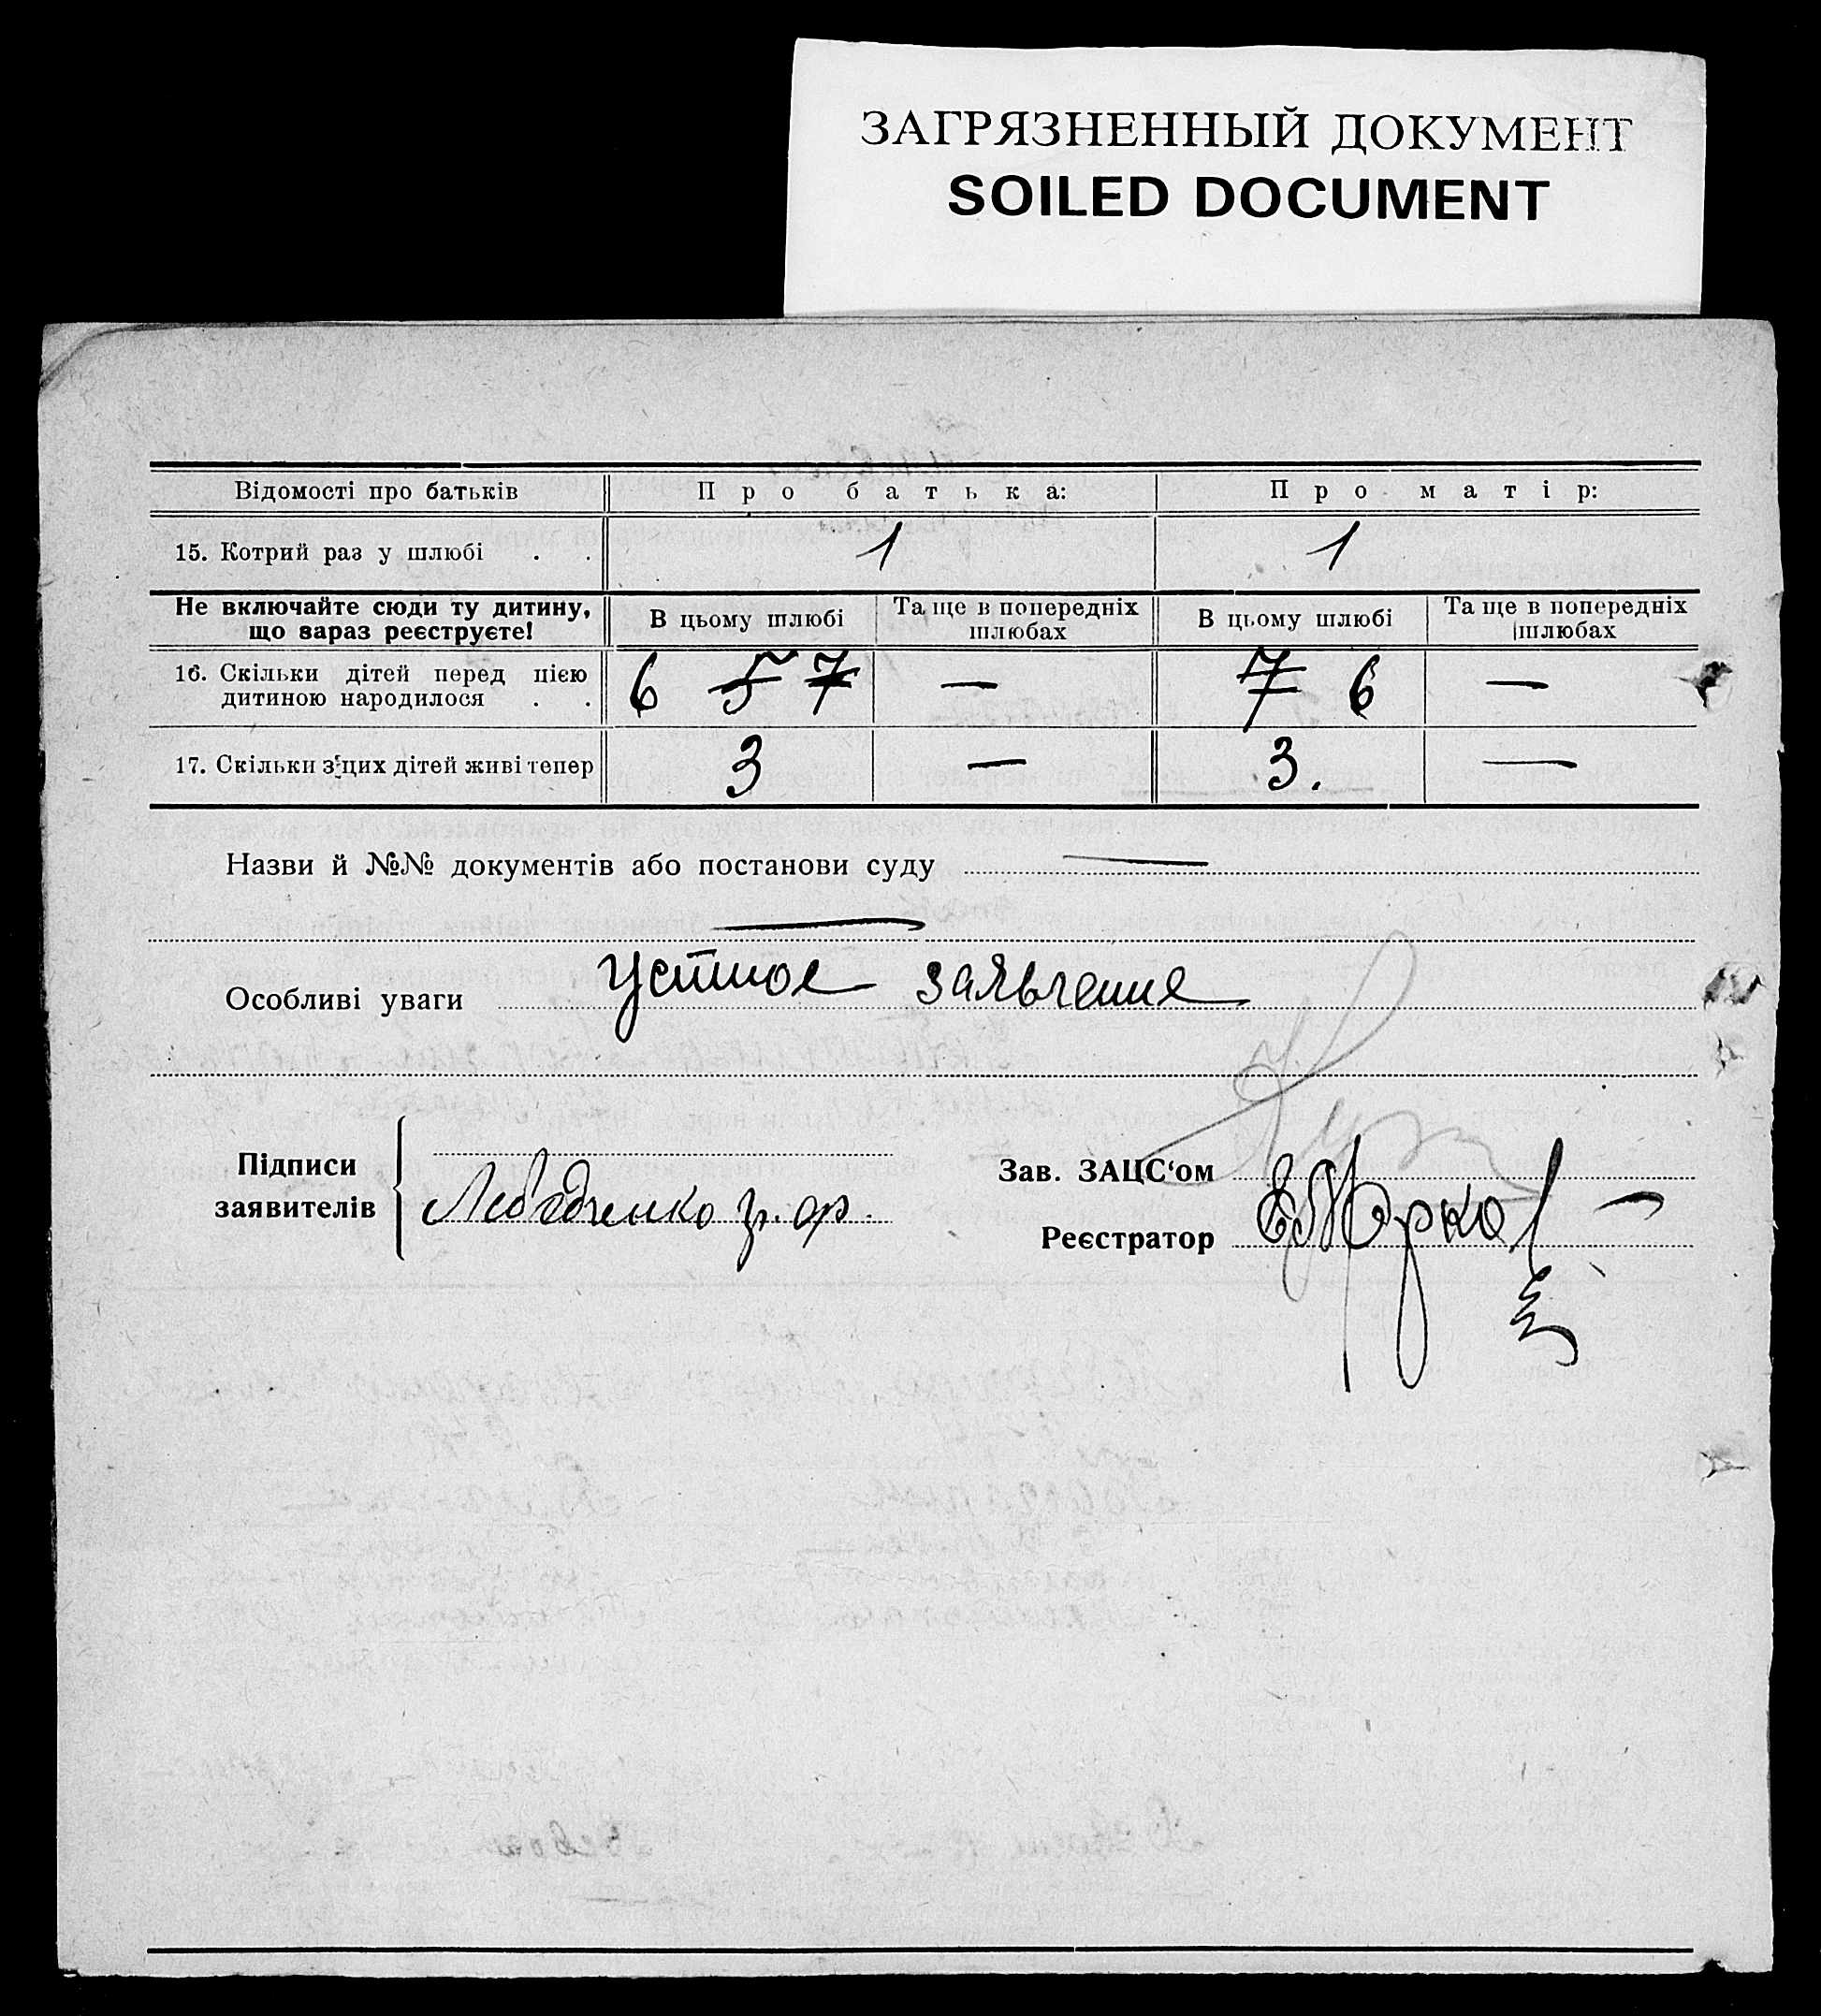 ЗАГРЯЗНЕННЫЙ ДОКУМЕНТ
SOILED DOCUMENT
Відомості про батьків Про батька: Про матір:
15. Котрий раз у шлюбі . . 1 1
Не включайте сюди ту дитину, що зараз реєструєте! В цьому шлюбі Та ще в попередніх шлюбах В цьому шлюбі Та ще в попередніх шлюбах
16. Скільки дітей перед цією дитиною народилося . . 6 5 7 — 7 6 —
17. Скільки з цих дітей живі тепер 3 — 3. —
Назви й №№ документів або постанови суду —
—
Особливі уваги Устное заявление
Підписи заявителів
Лебедченко
Зав. ЗАЦС'ом
Реєстратор